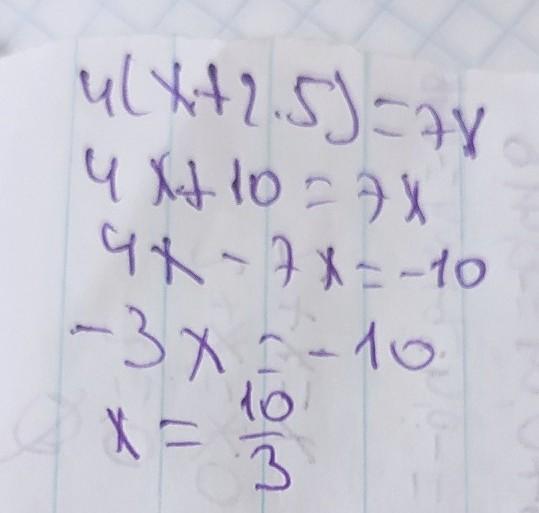 4(x+2.5)=7x
4x+10=7x
4x-7x=-10
-3x=-10
x=10/3